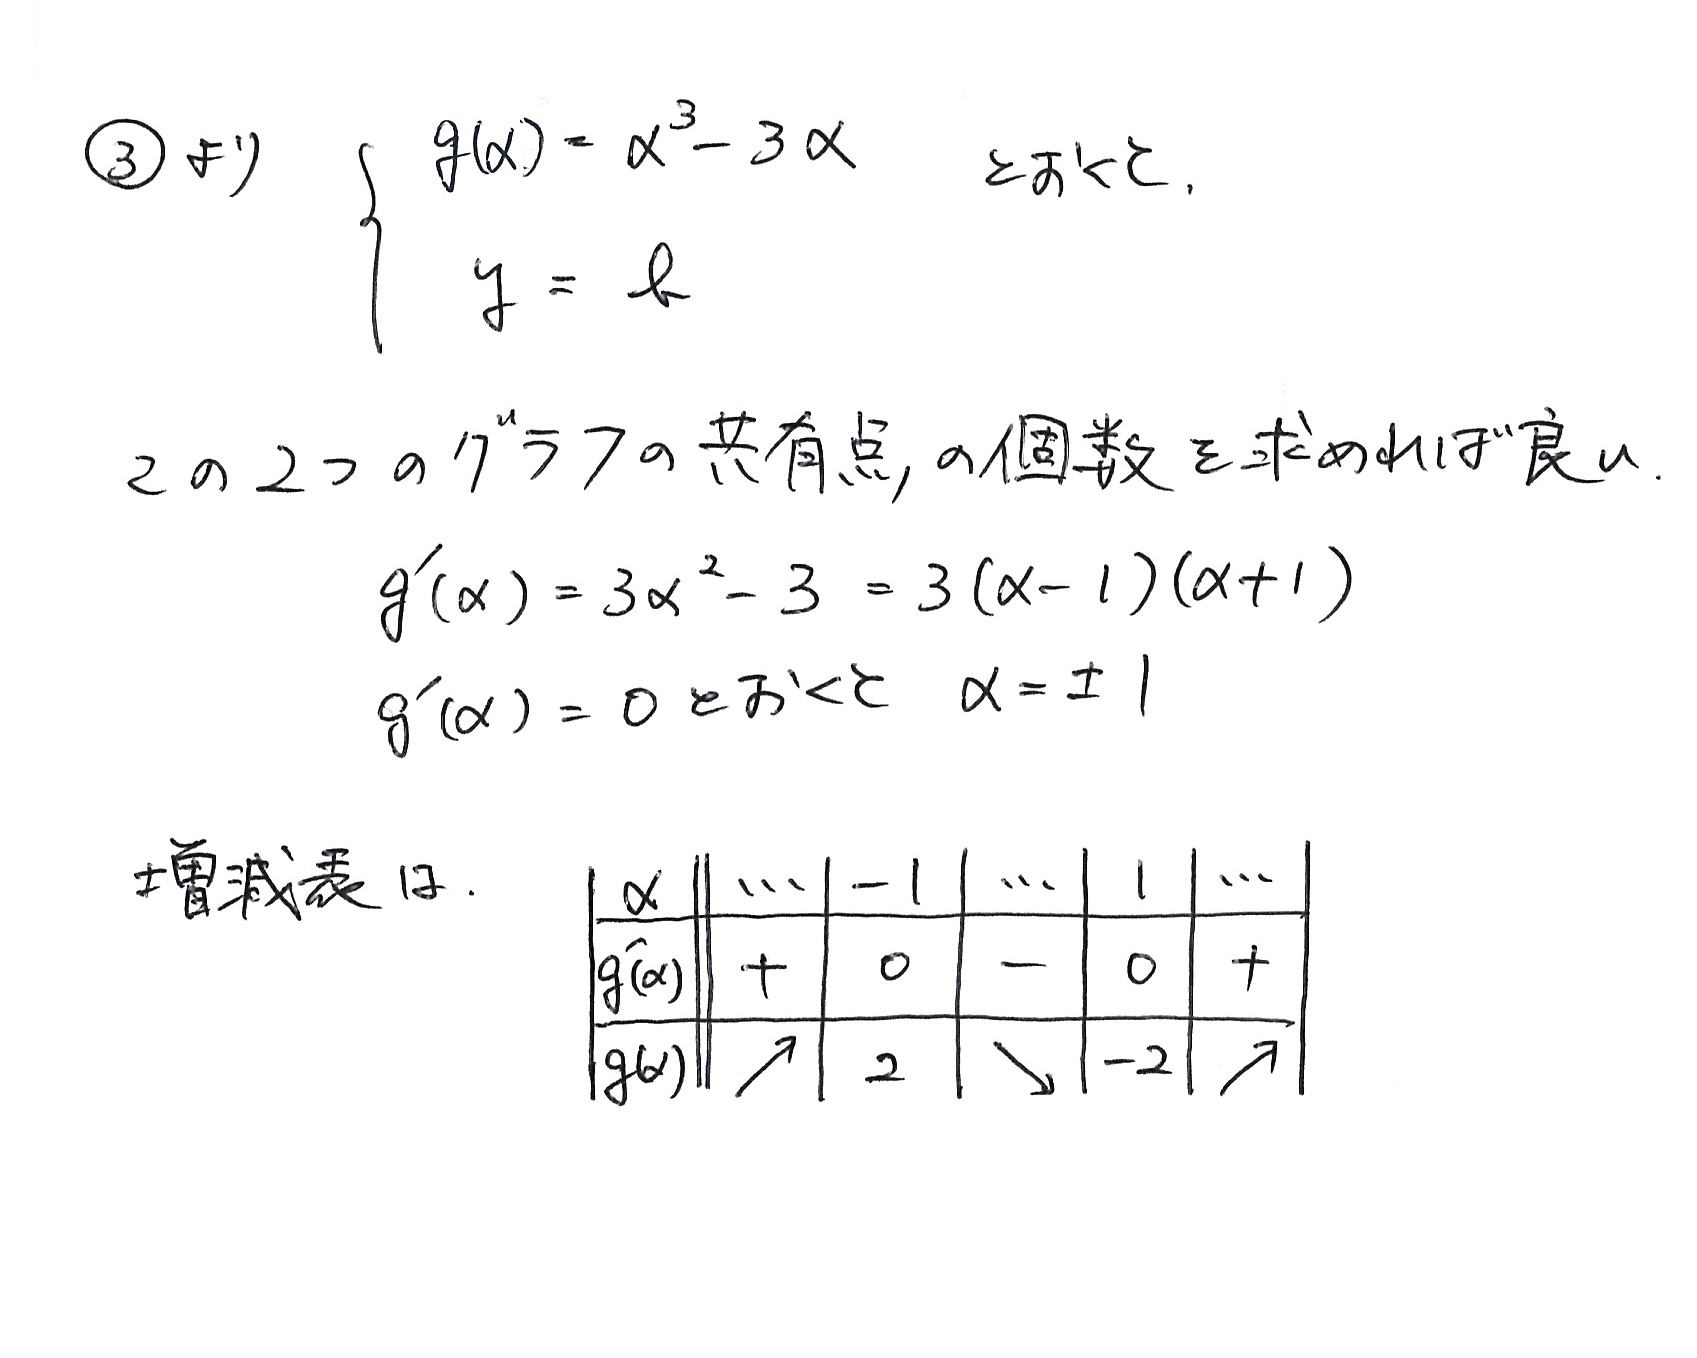 ③より { g(α) = α³ - 3α とおくと,
y = b
この2つのグラフの共有点,の個数を求めれば良い.
g′(α) = 3α² - 3 = 3(α-1)(α+1)
g′(α) = 0 とおくと α = ±1
増減表は.
α … -1 … 1 …
g′(α) + 0 - 0 +
g(α) ↗ 2 ↘ -2 ↗